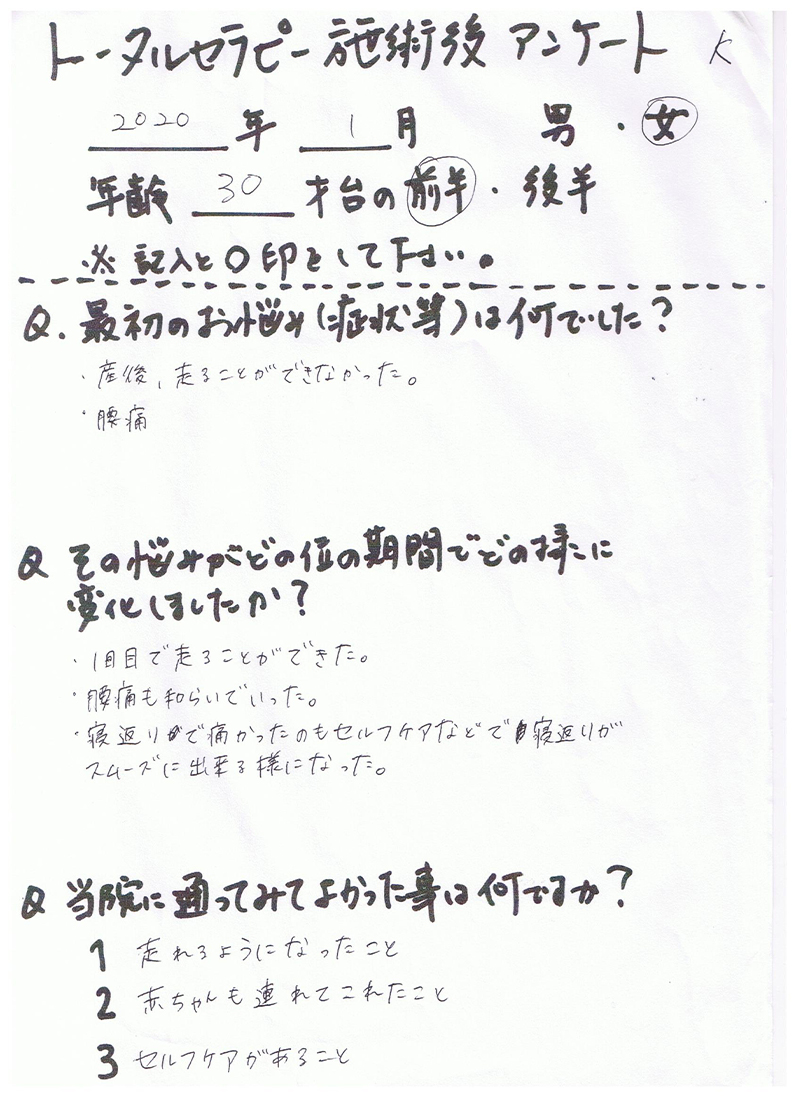 トータルセラピー施術後 アンケート K
2020 年 1 月 男・女
年齢 30 才台の前半・後半
※ 記入と○印をして下さい。
Q. 最初のお悩み(症状等)は何でした?
・産後、走ることができなかった。
・腰痛
Q その悩みがどの位の期間でどの様に
変化しましたか?
・1回目で走ることができた。
・腰痛も和らいでいった。
・寝返りで痛かったのもセルフケアなどで寝返りが
スムーズに出来る様になった。
Q 当院に通ってみてよかった事は何ですか?
1 走れるようになったこと
2 赤ちゃんも連れてこれたこと
3 セルフケアがあること